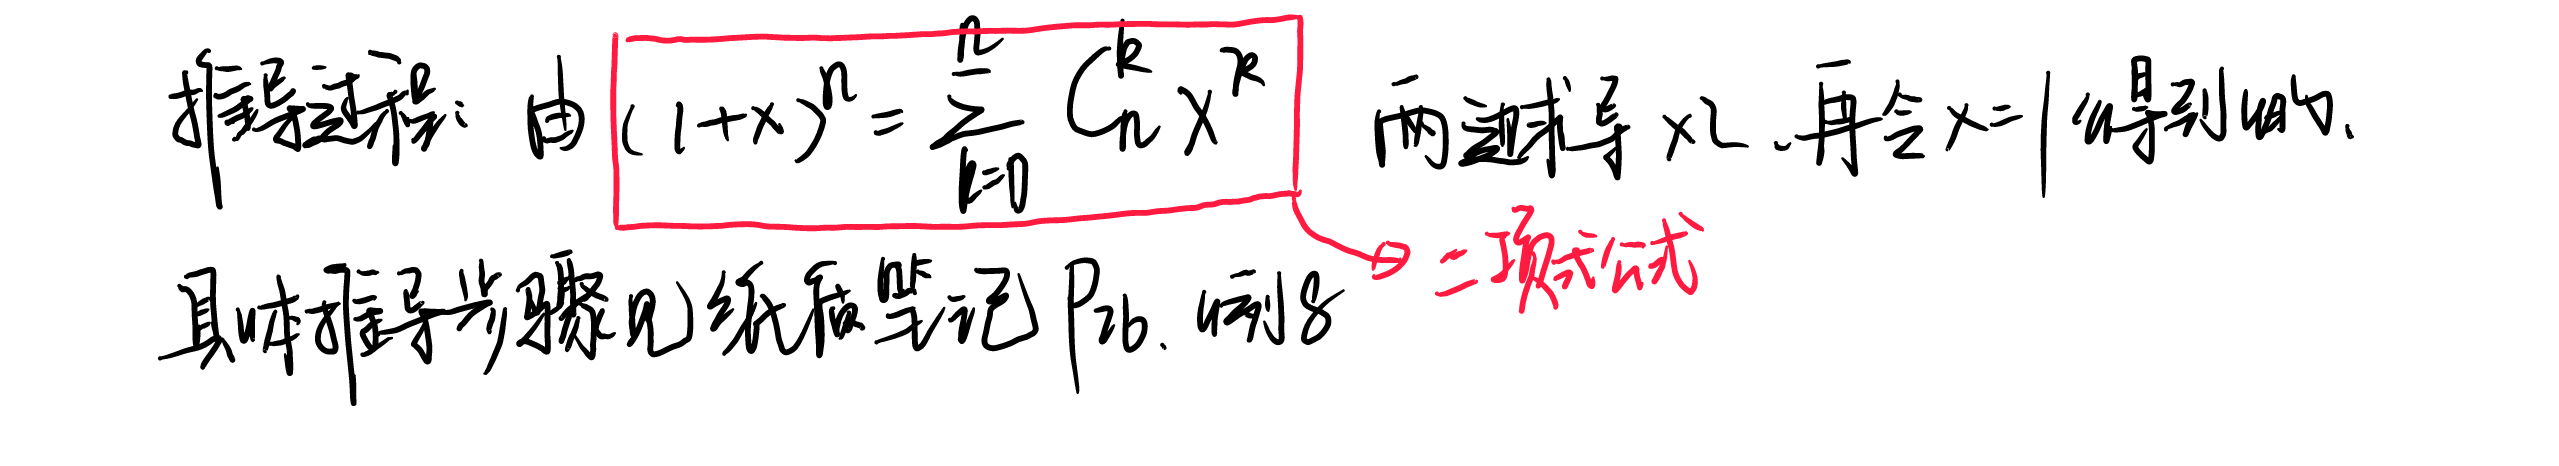 推导过程: 由 (1+x)^n = \sum_{k=0}^{n} C_n^k x^k 两边求导 x2、再令x=1得到的.
二项式公式
具体推导步骤见纸质笔记 P26. 例8